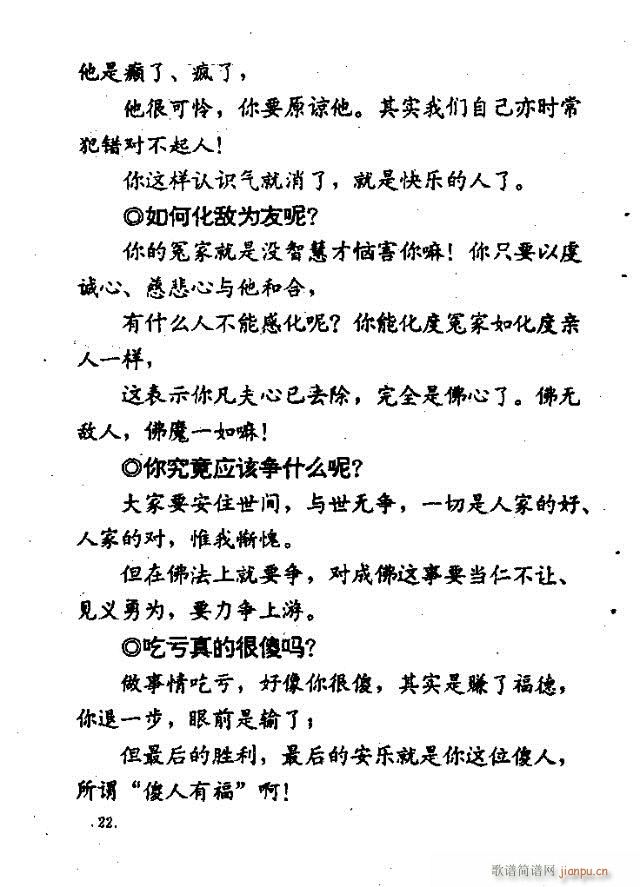 他是癫了、疯了，
他很可怜，你要原谅他。其实我们自己亦时常
犯错对不起人！
你这样认识气就消了，就是快乐的人了。
◎如何化敌为友呢？
你的冤家就是没智慧才恼害你嘛！你只要以虔
诚心、慈悲心与他和合，
有什么人不能感化呢？你能化度冤家如化度亲
人一样，
这表示你凡夫心已去除，完全是佛心了。佛无
敌人，佛魔一如嘛！
◎你究竟应该争什么呢？
大家要安住世间，与世无争，一切是人家的好、
人家的对，惟我惭愧。
但在佛法上就要争，对成佛这事要当仁不让、
见义勇为，要力争上游。
◎吃亏真的很傻吗？
做事情吃亏，好像你很傻，其实是赚了福德，
你退一步，眼前是输了；
但最后的胜利，最后的安乐就是你这位傻人，
所谓“傻人有福”啊！
.22.
歌谱简谱网
jianpu.cn